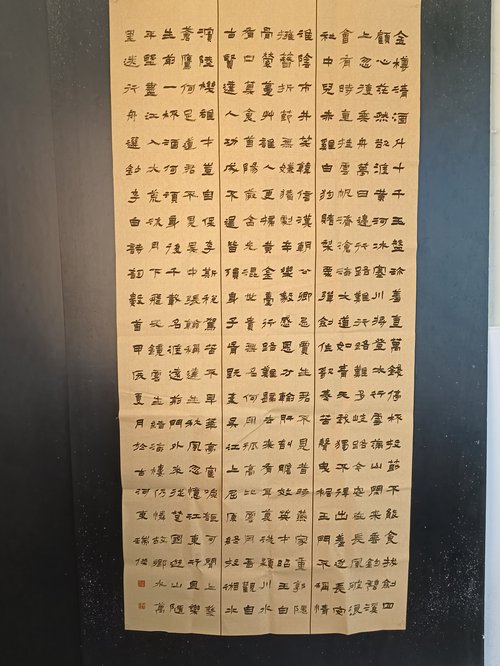 金樽清酒斗十千玉盤珍羞直萬錢停杯投箸不能食拔劍四
顧心茫然欲渡黃河冰塞川將登太行雪滿山閑來垂釣碧溪
上忽復乘舟夢日邊行路難行路難多岐路今安在長風破浪
會有時直掛雲帆濟滄海大道如青天我獨不得出羞逐長安
社中兒赤雞白狗賭梨栗彈劍作歌奏苦聲曳裾王門不稱情
淮陰市井笑韓信漢朝公卿忌賈生君不見昔時燕家重郭隗
擁篲折節無嫌猜劇辛樂毅感恩分輸肝剖膽效英才昭王白
骨縈蔓草誰人更掃黃金臺行路難歸去來有耳莫洗潁川水
有口莫食首陽蕨含光混世貴無名何用孤高比雲月吾觀自
古賢達人功成不退皆殞身子胥既棄吳江上屈原終投湘水
濱陸機雄才豈自保李斯稅駕苦不早華亭鶴唳詎可聞上蔡
蒼鷹何足道君不見吳中張翰稱達生秋風忽憶江東行且樂
生前一杯酒何須身後千載名渡遠荊門外來從楚國遊山隨
平野盡江入大荒流月下飛天鏡雲生結海樓仍憐故鄉水萬
里送行舟選李白詩數首甲辰夏月於古河東瑞